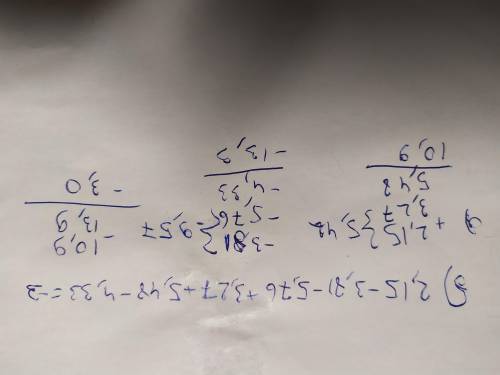 5) 2,15-3,81-5,76+3,27+5,48-4,33=-3
+ 2,15 } 5,42
3,27
5,48
10,9
-3,81 } =9,57
-5,76
-4,33
-13,9
-10,9
13,9
-3,0